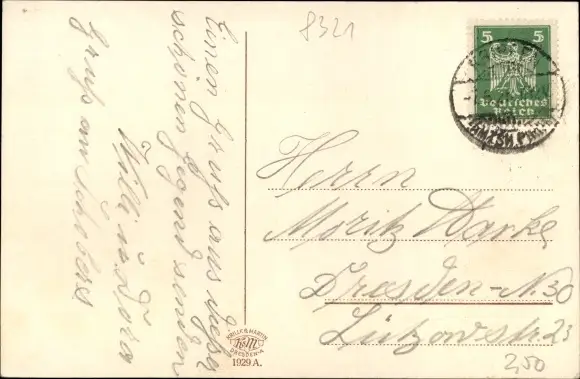 8321
Einen Gruß aus dieser
schönen Gegend senden
Willi u. Dora
Gruß an
5 5
Deutsches
Reich
Herrn
Moritz Warke
Dresden-N. 30
Lützowstr. 23
2,50
KRILLE & MARTIN
K&M
DRESDEN-A
1929 A.